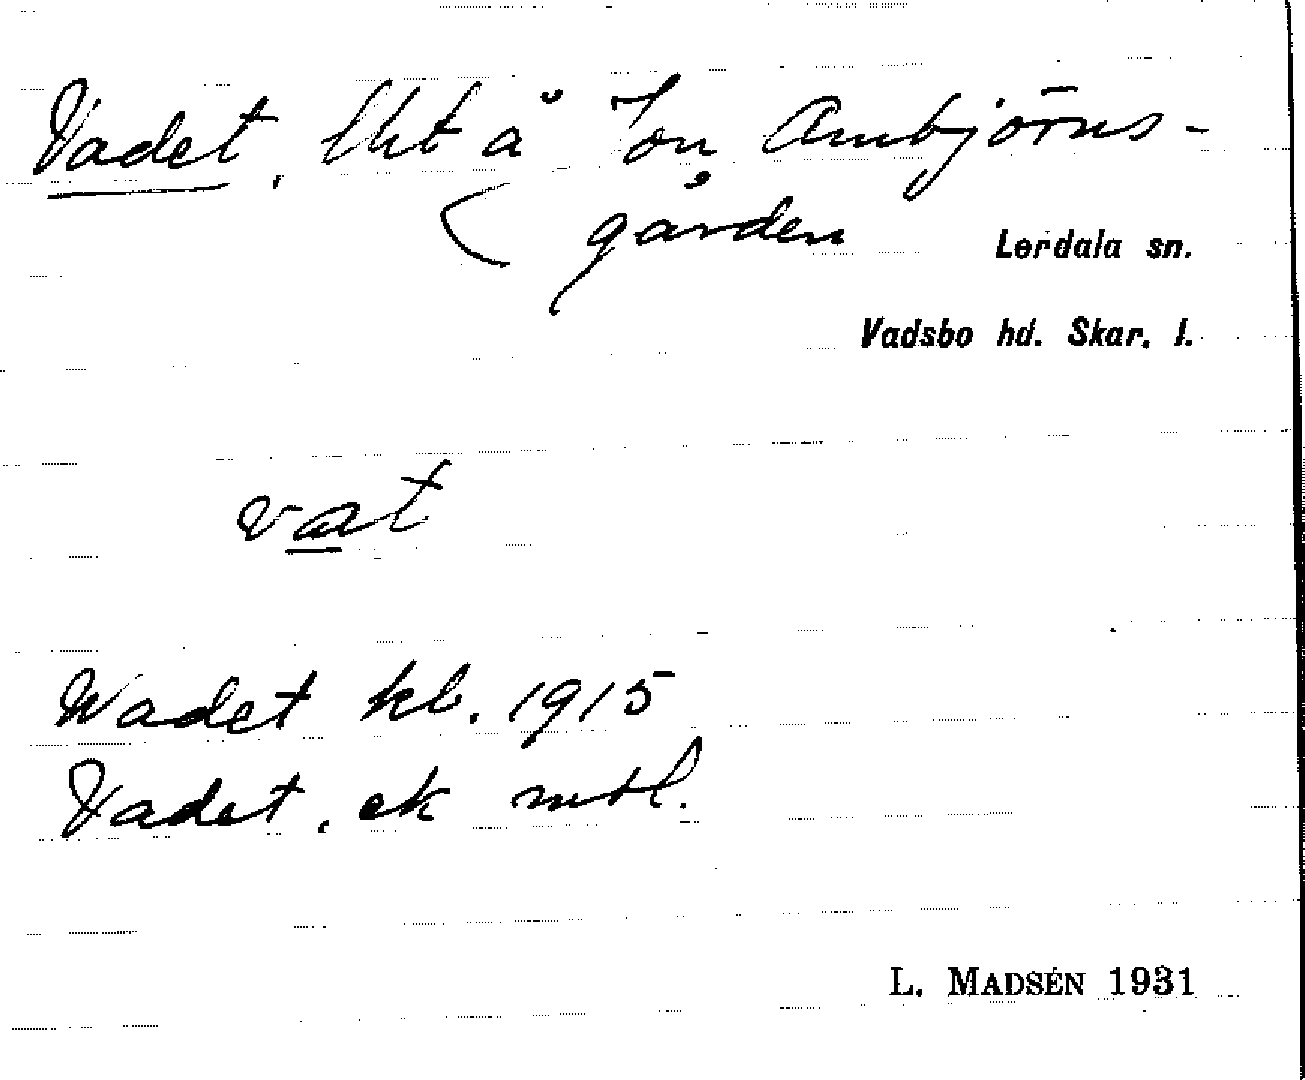 Vadet, lht å Jon Ambjörns-
gården
Lerdala sn.
Vadsbo hd. Skar. l.
vat
Wadet kb. 1915
Vadet, ek mtl.
L. MADSÉN 1931